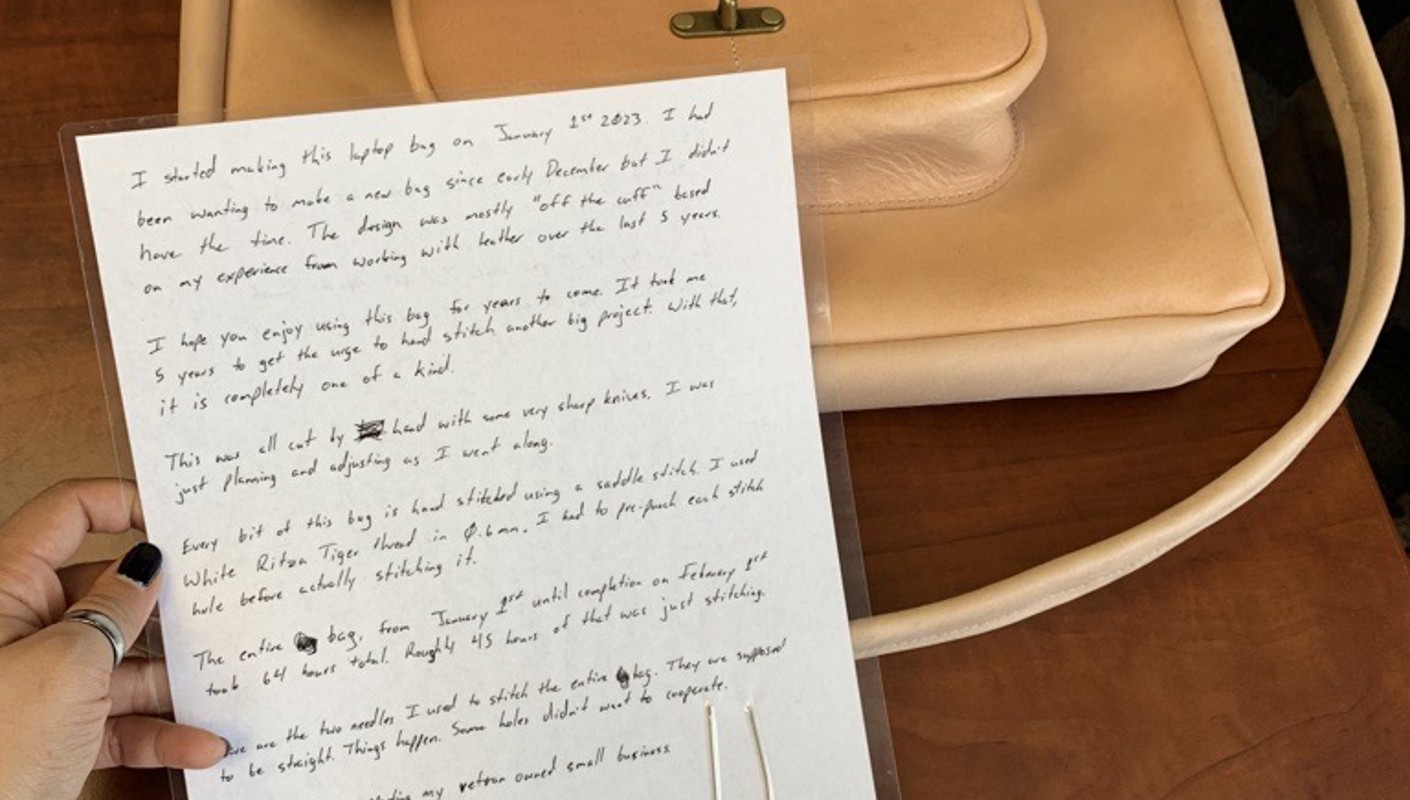 I started making this laptop bag on January 1st 2023. I had
been wanting to make a new bag since early December but I didn't
have the time. The design was mostly "off the cuff" based
on my experience from working with leather over the last 5 years.
I hope you enjoy using this bag for years to come. It took me
5 years to get the urge to hand stitch another big project. With that,
it is completely one of a kind.
This was all cut by hand with some very sharp knives. I was
just planning and adjusting as I went along.
Every bit of this bag is hand stitched using a saddle stitch. I used
White Ritza Tiger thread in 0.6mm. I had to pre-punch each stitch
hole before actually stitching it.
The entire bag, from January 1st until completion on February 1st
took 64 hours total. Roughly 45 hours of that was just stitching.
are the two needles I used to stitch the entire bag. They are supposed
to be straight. Things happen. Some holes didn't want to cooperate.
my vetran owned small business